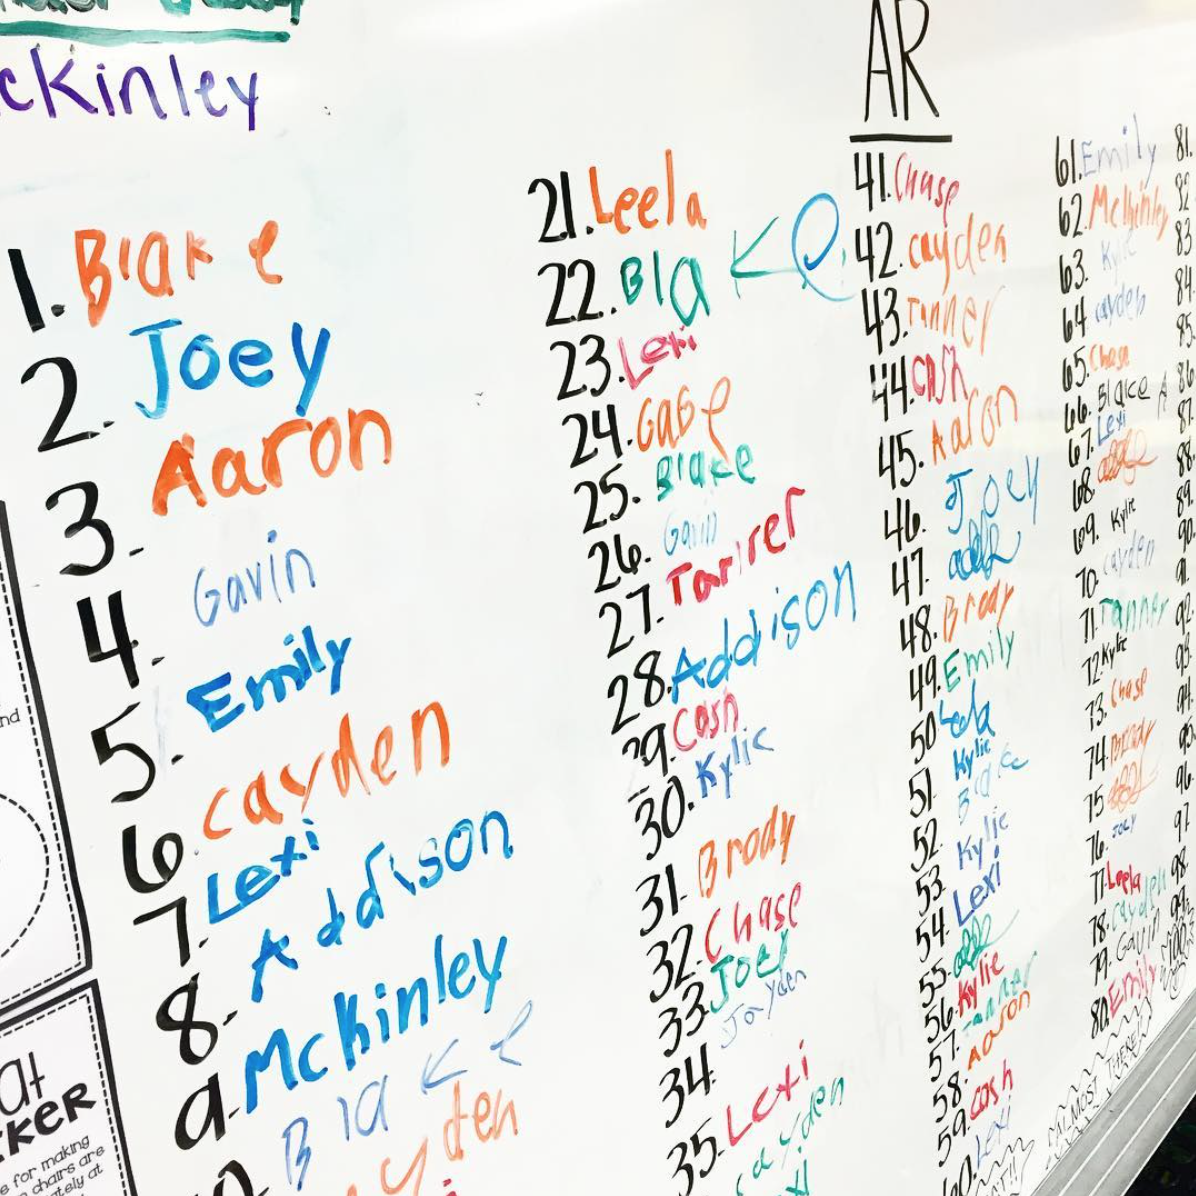 McKinley
AR
1. Blake
2. Joey
3. Aaron
4. Gavin
5. Emily
6. Cayden
7. Lexi
8. Addison
9. Mckinley
Blake
yden
21. Leela
22. Bla ke
23. Lexi
24. Gage
25. Blake
26. Gavin
27. Tanner
28. Addison
29. Cash
30. Kylie
31. Brody
32. Chase
33. Joey
34. Jayden
35. Lexi
cayden
41. Chase
42. cayden
43. Tanner
44. Cash
45. Aaron
46. Joey
47.
48. Brody
49. Emily
50. Leela
51. Kylie
52. Blake
53. Kylie
54. Lexi
55.
56. Kylie
57. Tanner
58. Aaron
59. Cash
60. Lexi
61. Emily
62. McKinley
63. Kylie
64. cayden
65. Chase
66. Blake A
67. Lexi
68.
69. Kylie
70. cayden
71. Tanner
72. Kylie
73. Chase
74. Brody
75.
76. Joey
77. Leela
78. Cayden
79. Gavin
80. Emily
ALMOST THERE
81.
82
83
84.
85.
86
87.
88.
89.
90.
91.
92.
93.
94.
95.
96.
97.
98.
99.
100
nd
at
KER
e for making
chairs are
ately at